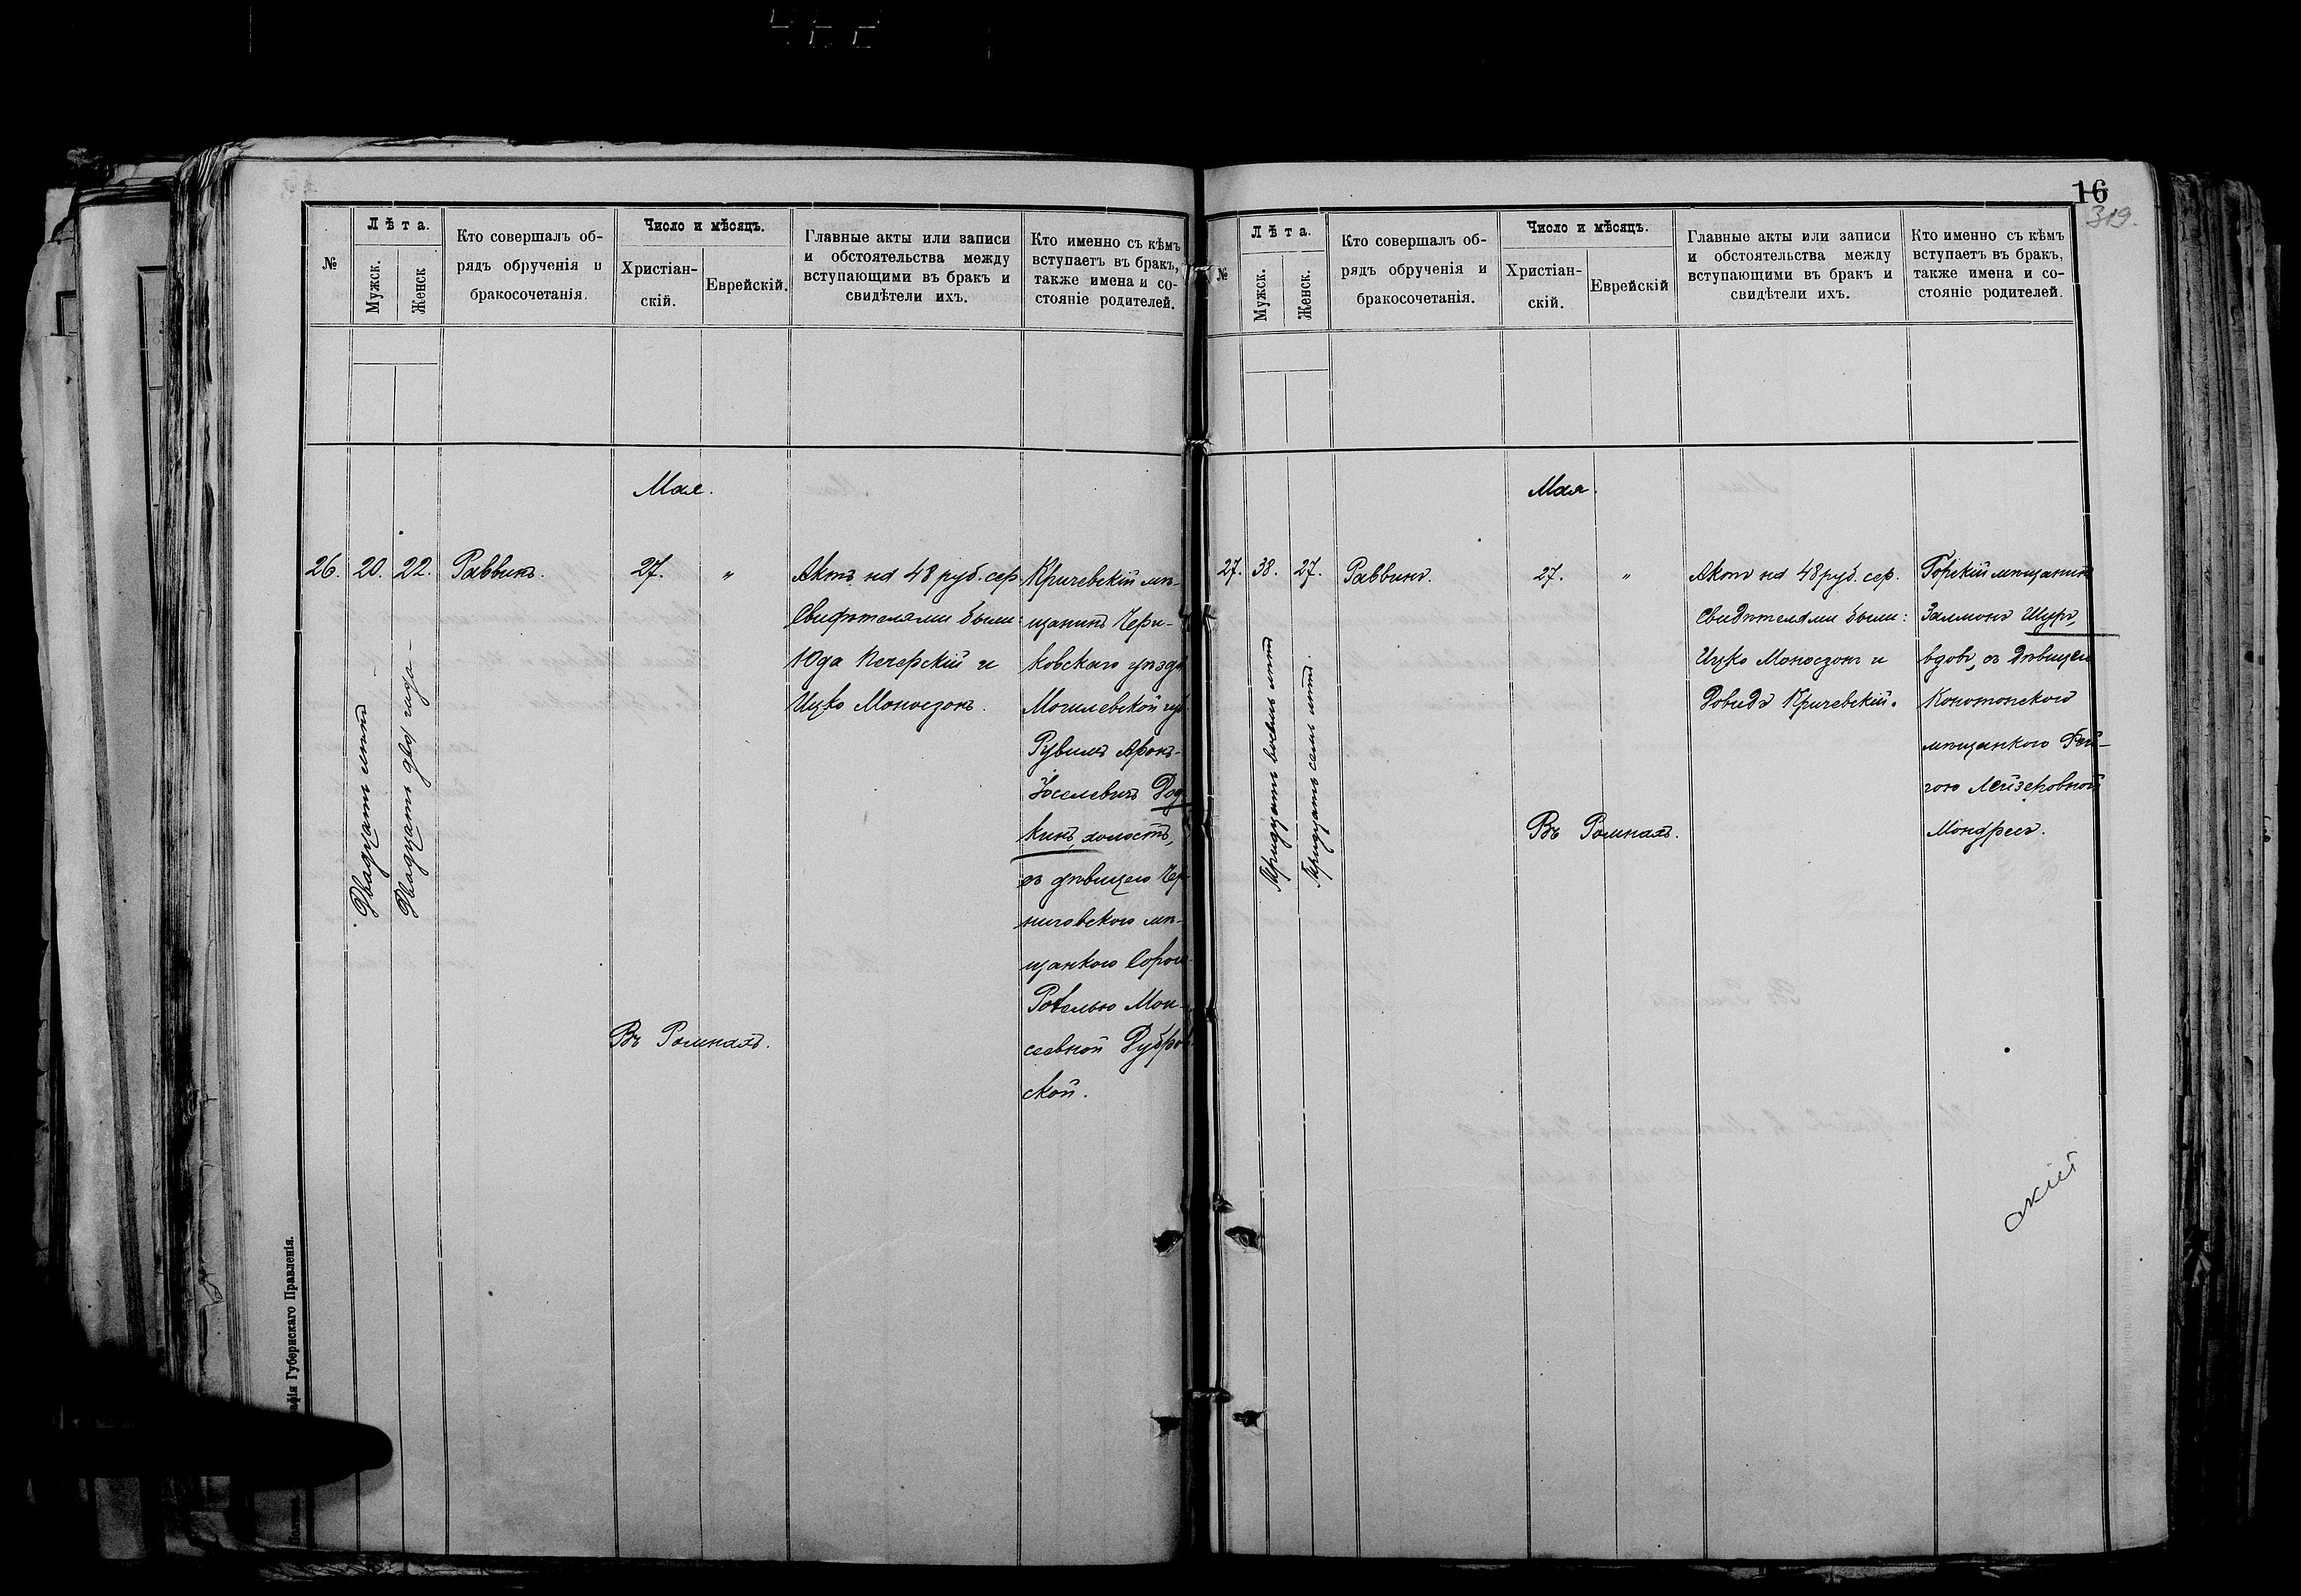 16
319.
№
Лѣта.
Мужск.
Женск
Кто совершалъ об-
рядъ обрученія и
бракосочетанія.
Число и мѣсяцъ.
Христіан-
скій.
Еврейскій.
Главные акты или записи
и обстоятельства между
вступающими въ бракъ и
свидѣтели ихъ.
Кто именно съ кѣмъ
вступаетъ въ бракъ,
также имена и со-
стояніе родителей.
Мая.
26.
20.
22.
Двадцать лѣтъ
Двадцать два года
Раввинъ.
27.
"
Въ Ромнахъ.
Актъ на 48 руб. сер.
Свидѣтелями были:
Юда Печерскій и
Ицко Моносзонъ.
Кричевскій мѣ-
щанинъ Чери-
ковскаго уѣзда
Могилевской губ.
Рувимъ Аронъ-
Іоселевичъ Дод-
кинъ, холостъ,
съ дѣвицею Чер-
ниговскою мѣ-
щанкою Сорою
Мов-
шевной Дубров-
ской.
фія Губернскаго Правленія.
№
Лѣта.
Мужск.
Женск.
Кто совершалъ об-
рядъ обрученія и
бракосочетанія.
Число и мѣсяцъ.
Христіан-
скій.
Еврейскій
Главные акты или записи
и обстоятельства между
вступающими въ бракъ и
свидѣтели ихъ.
Кто именно съ кѣмъ
вступаетъ въ бракъ,
также имена и со-
стояніе родителей.
Мая.
27.
38.
27.
Тридцать восемь лѣтъ
Тридцать семь лѣтъ.
Раввинъ.
27.
"
Въ Ромнахъ.
Актъ на 48 руб. сер.
Свидѣтелями были:
Ицко Моносзонъ и
Довидъ Кричевскій.
Горскій мѣщанинъ
Залмонъ Шуръ,
вдовъ, съ дѣвицею
Конотопскою
мѣщанкою Фей-
гою Лейзеровной
Мондресъ.
скій